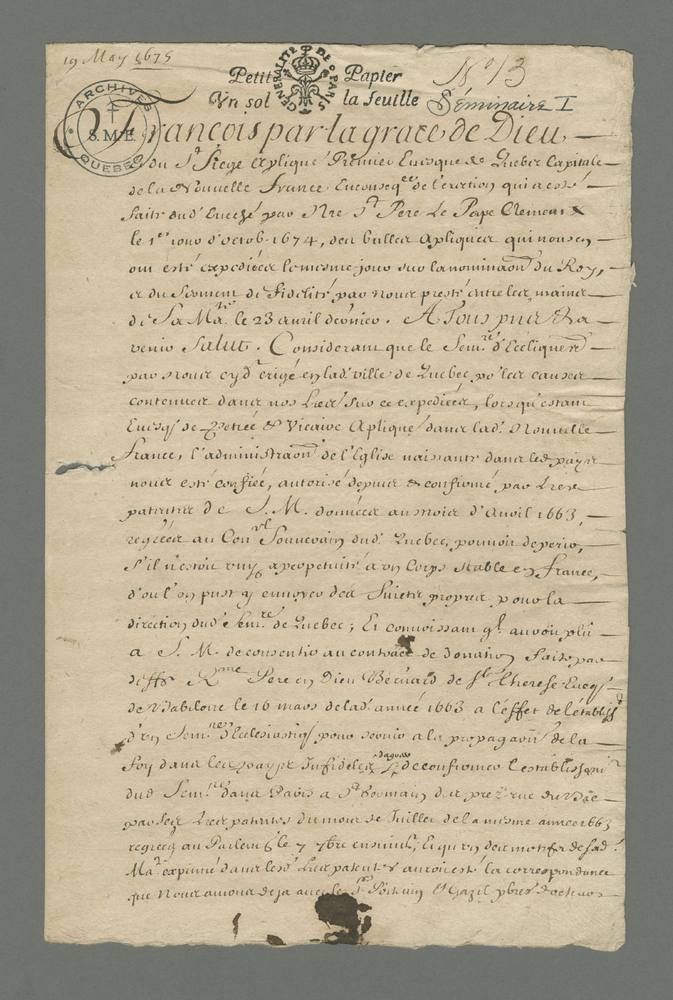 19 May 1675
Petit Papier
Vn sol la feuille
GENERALITE DE PARIS
No 13
Séminaire I
ARCHIVES
S.M.E.
QUEBEC
François par la grace de Dieu
& du St Siege Aplique Premier Euesque de Quebec Capitale
de la Nouuelle France En conseqce de l'erection qui a esté
faite dud. Euesché par Nre St Pere Le Pape Clement X
le 1er iour d'octob. 1674, des bulles Apliques qui nous en
ont esté expediées le mesme jour sur la nominaon du Roy,
& du Serment de fidelité par nous presté entre les mains
de Sa Maté le 23 avril dernier. A Tous pns & a
venir Salut. Considerant que le Semre d'Ecclíques
par nous cyd. erigé en lad. ville de Quebec por les causes
contenues dans nos Lres sur ce expediées, lorsqu'estant
Euesq. de Petrée & Vicaire Aplique dans lad. Nouuelle
france, l'administraon de l'Eglise naissante dans led. pays
nous esté confiée, autorisé depuis & confirmé par Lres
patentes de S. M. données au mois d'Auril 1663,
regrées au Conel Souuerain dud. Quebec, pouuoit deperir,
s'il n'estoit vny a perpetuité a vn Corps stable en france,
d'où l'on pust y enuoyer des Suiets propres pour la
direction dud. Semre de Quebec; Et connoissant ql auroit plû
a S. M. de consentir au contract de donation faite par
defft Rme Pere en Dieu Bernard de Ste Therese Euesq.
de Babilone le 16 mars de lad. année 1663 a l'effet de l'établisst
d'vn Semre d'Ecclesiastiqs pour seruir a la propagaon de la
foy dans les pays Infideles & de confirmer l'establissemt
dud. Semre dans Paris a St Germain des prez rue du Bac
par ses Lres patentes du mois de Juillet de la mesme année 1663
regrées au Parlemt le 7 7bre ensuiut, Et qu'vn des motifs de sad.
Maté exprimé dans lesd. Lres patentes auroit esté la correspondance
que Nous auions deja auec les Srs Poiteuin Et Gazil pbres Docteurs